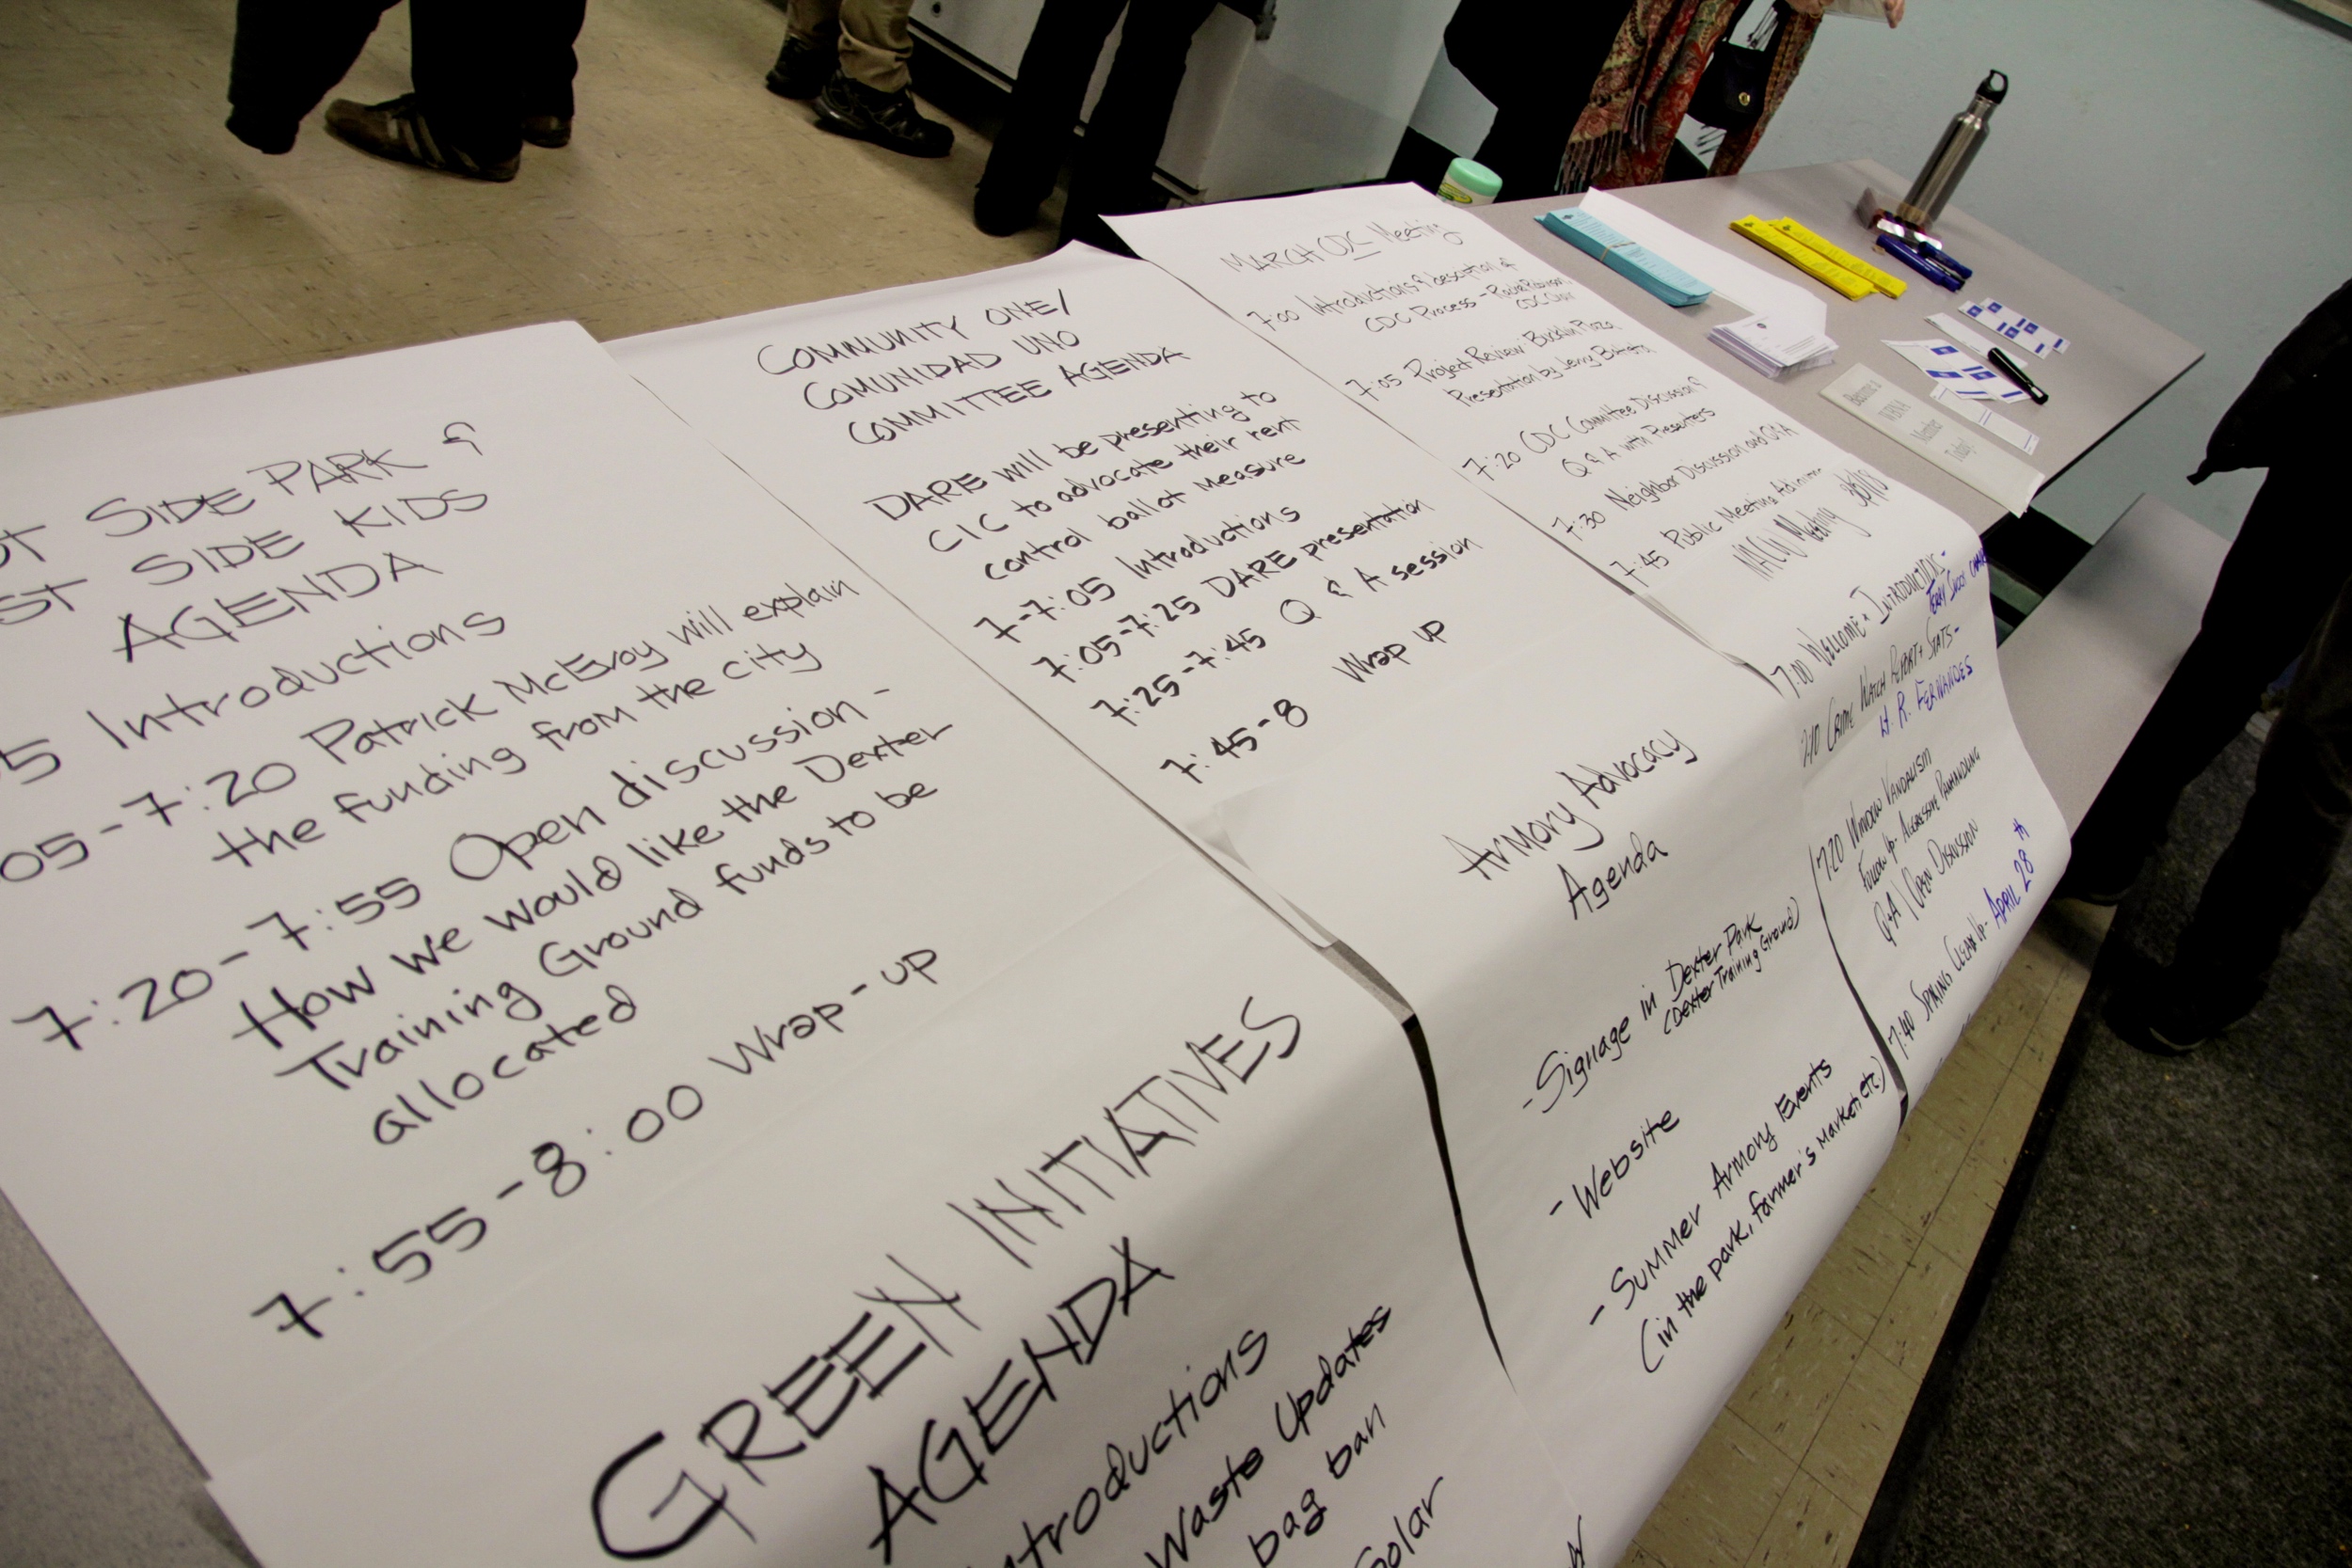 ST SIDE PARK &
ST SIDE KIDS
AGENDA
05 Introductions
05-7:20 Patrick McEvoy will explain
the funding from the city
7:20-7:55 Open discussion -
How we would like the Dexter
Training Ground funds to be
allocated
7:55-8:00 Wrap-up
GREEN INITIATIVES
AGENDA
ntroductions
Waste Updates
bag ban
Solar
COMMUNITY ONE/
COMUNIDAD UNO
COMMITTEE AGENDA
DARE will be presenting to
CIC to advocate their rent
control ballot measure
7-7:05 Introductions
7:05-7:25 DARE presentation
7:25-7:45 Q & A session
7:45-8 Wrap up
Armory Advocacy
Agenda
- Signage in Dexter Park
(Dexter Training Ground)
- Website
- Summer Armory Events
(in the park, farmer's market etc.)
MARCH CDC Meeting
7:00 Introductions & description of
CDC Process -
CDC Chair
7:05 Project Review: Bucklin Plaza
Presentation by Jerry
7:20 CDC Committee Discussion &
Q & A with Presenters
7:30 Neighbor Discussion and Q&A
7:45 Public Meeting
Meeting
7:00 WELCOME & INTRODUCTIONS -
CRIME WATCH REPORT & STATS -
LT. R. FERNANDES
7:20 WINDOW VANDALISM
FOLLOW UP - AGGRESSIVE PANHANDLING
Q+A / OPEN DISCUSSION
7:40 SPRING CLEAN UP - APRIL 28th
Become a
WBNA
Member
Today!